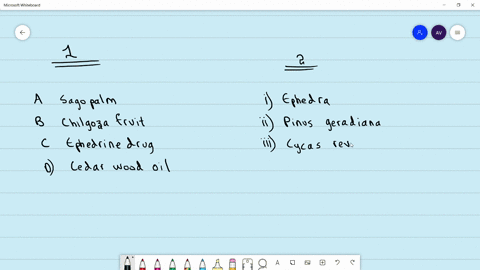 Microsoft Whiteboard
AV
1
A Sagopalm
B Chilgoza fruit
C Ephedrine drug
D) Cedar wood oil
2
i) Ephedra
ii) Pinus geradiana
iii) Cycas rev